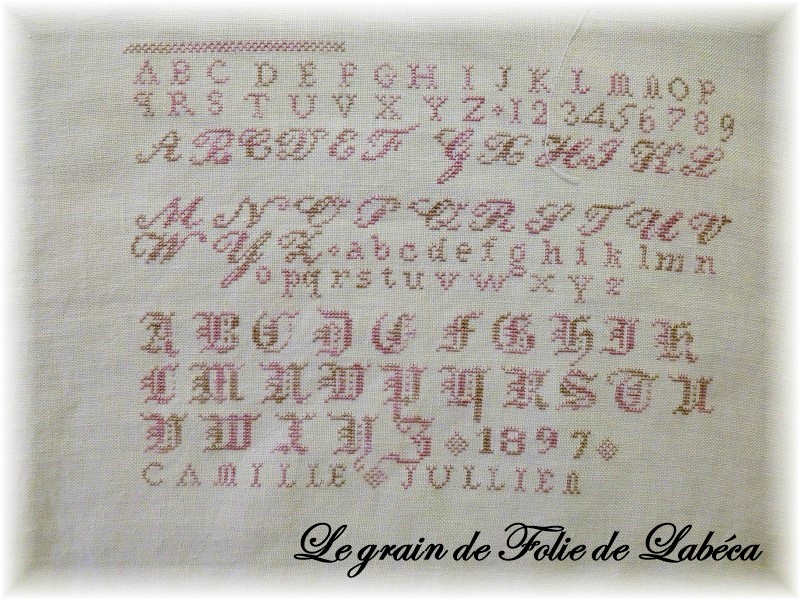 A B C D E F G H I J K L m n O p
q R S T U V X Y Z + 1 2 3 4 5 6 7 8 9
A B C D E F G H I J K L
M N O P Q R S T U V
W Y Z + a b c d e f g h i k l m n
o p q r s t u v w x y z
A B C D E F G H I K
L M N O P Q R S T U
V W X Y Z 1897
CAMILLE JULLIEn
Le grain de Folie de Labéca